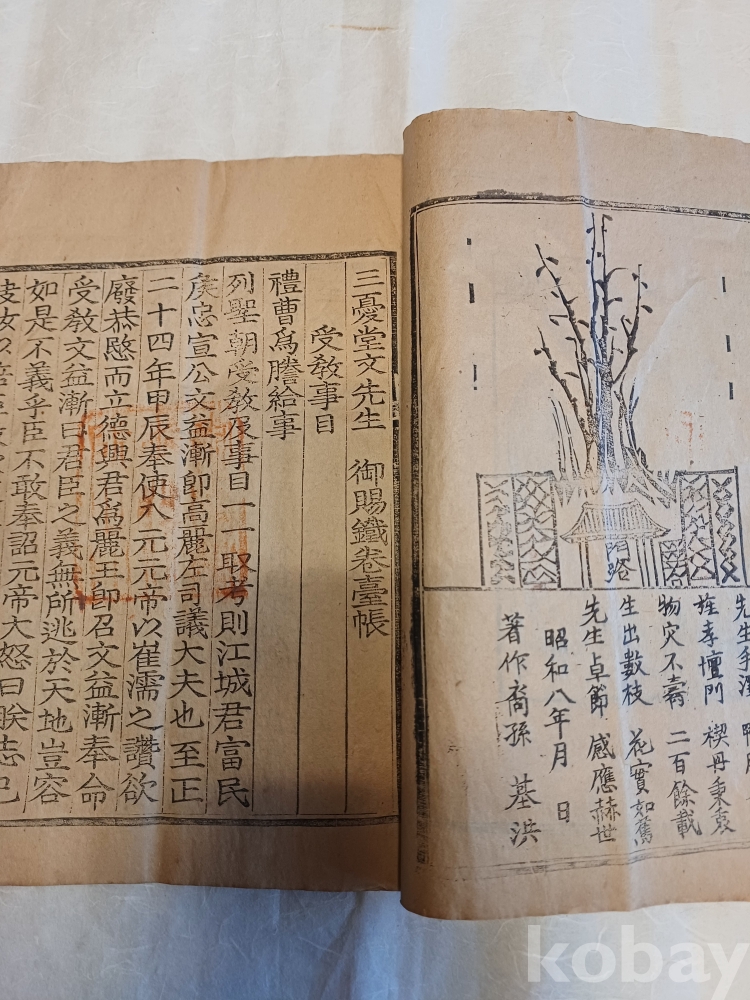 先生手澤
旌孝壇門 禊丹秉袁
物灾不壽 二百餘載
生出數枝 花實如舊
先生卓節 感應赫世
昭和八年月 日
著作裔孫 基洪
三憂堂文先生 御賜鐵卷臺帳
受敎事目
禮曹爲謄給事
列聖朝受敎及事目一一取考則江城君富民
侯忠宣公文益漸卽高麗左司議大夫也至正
二十四年甲辰奉使入元元帝以崔濡之讚欲
廢恭愍而立德興君爲麗王卽召文益漸奉命
受敎文益漸曰君臣之義無所逃於天地豈容
如是不義乎臣不敢奉詔元帝大怒曰朕志已
kobay